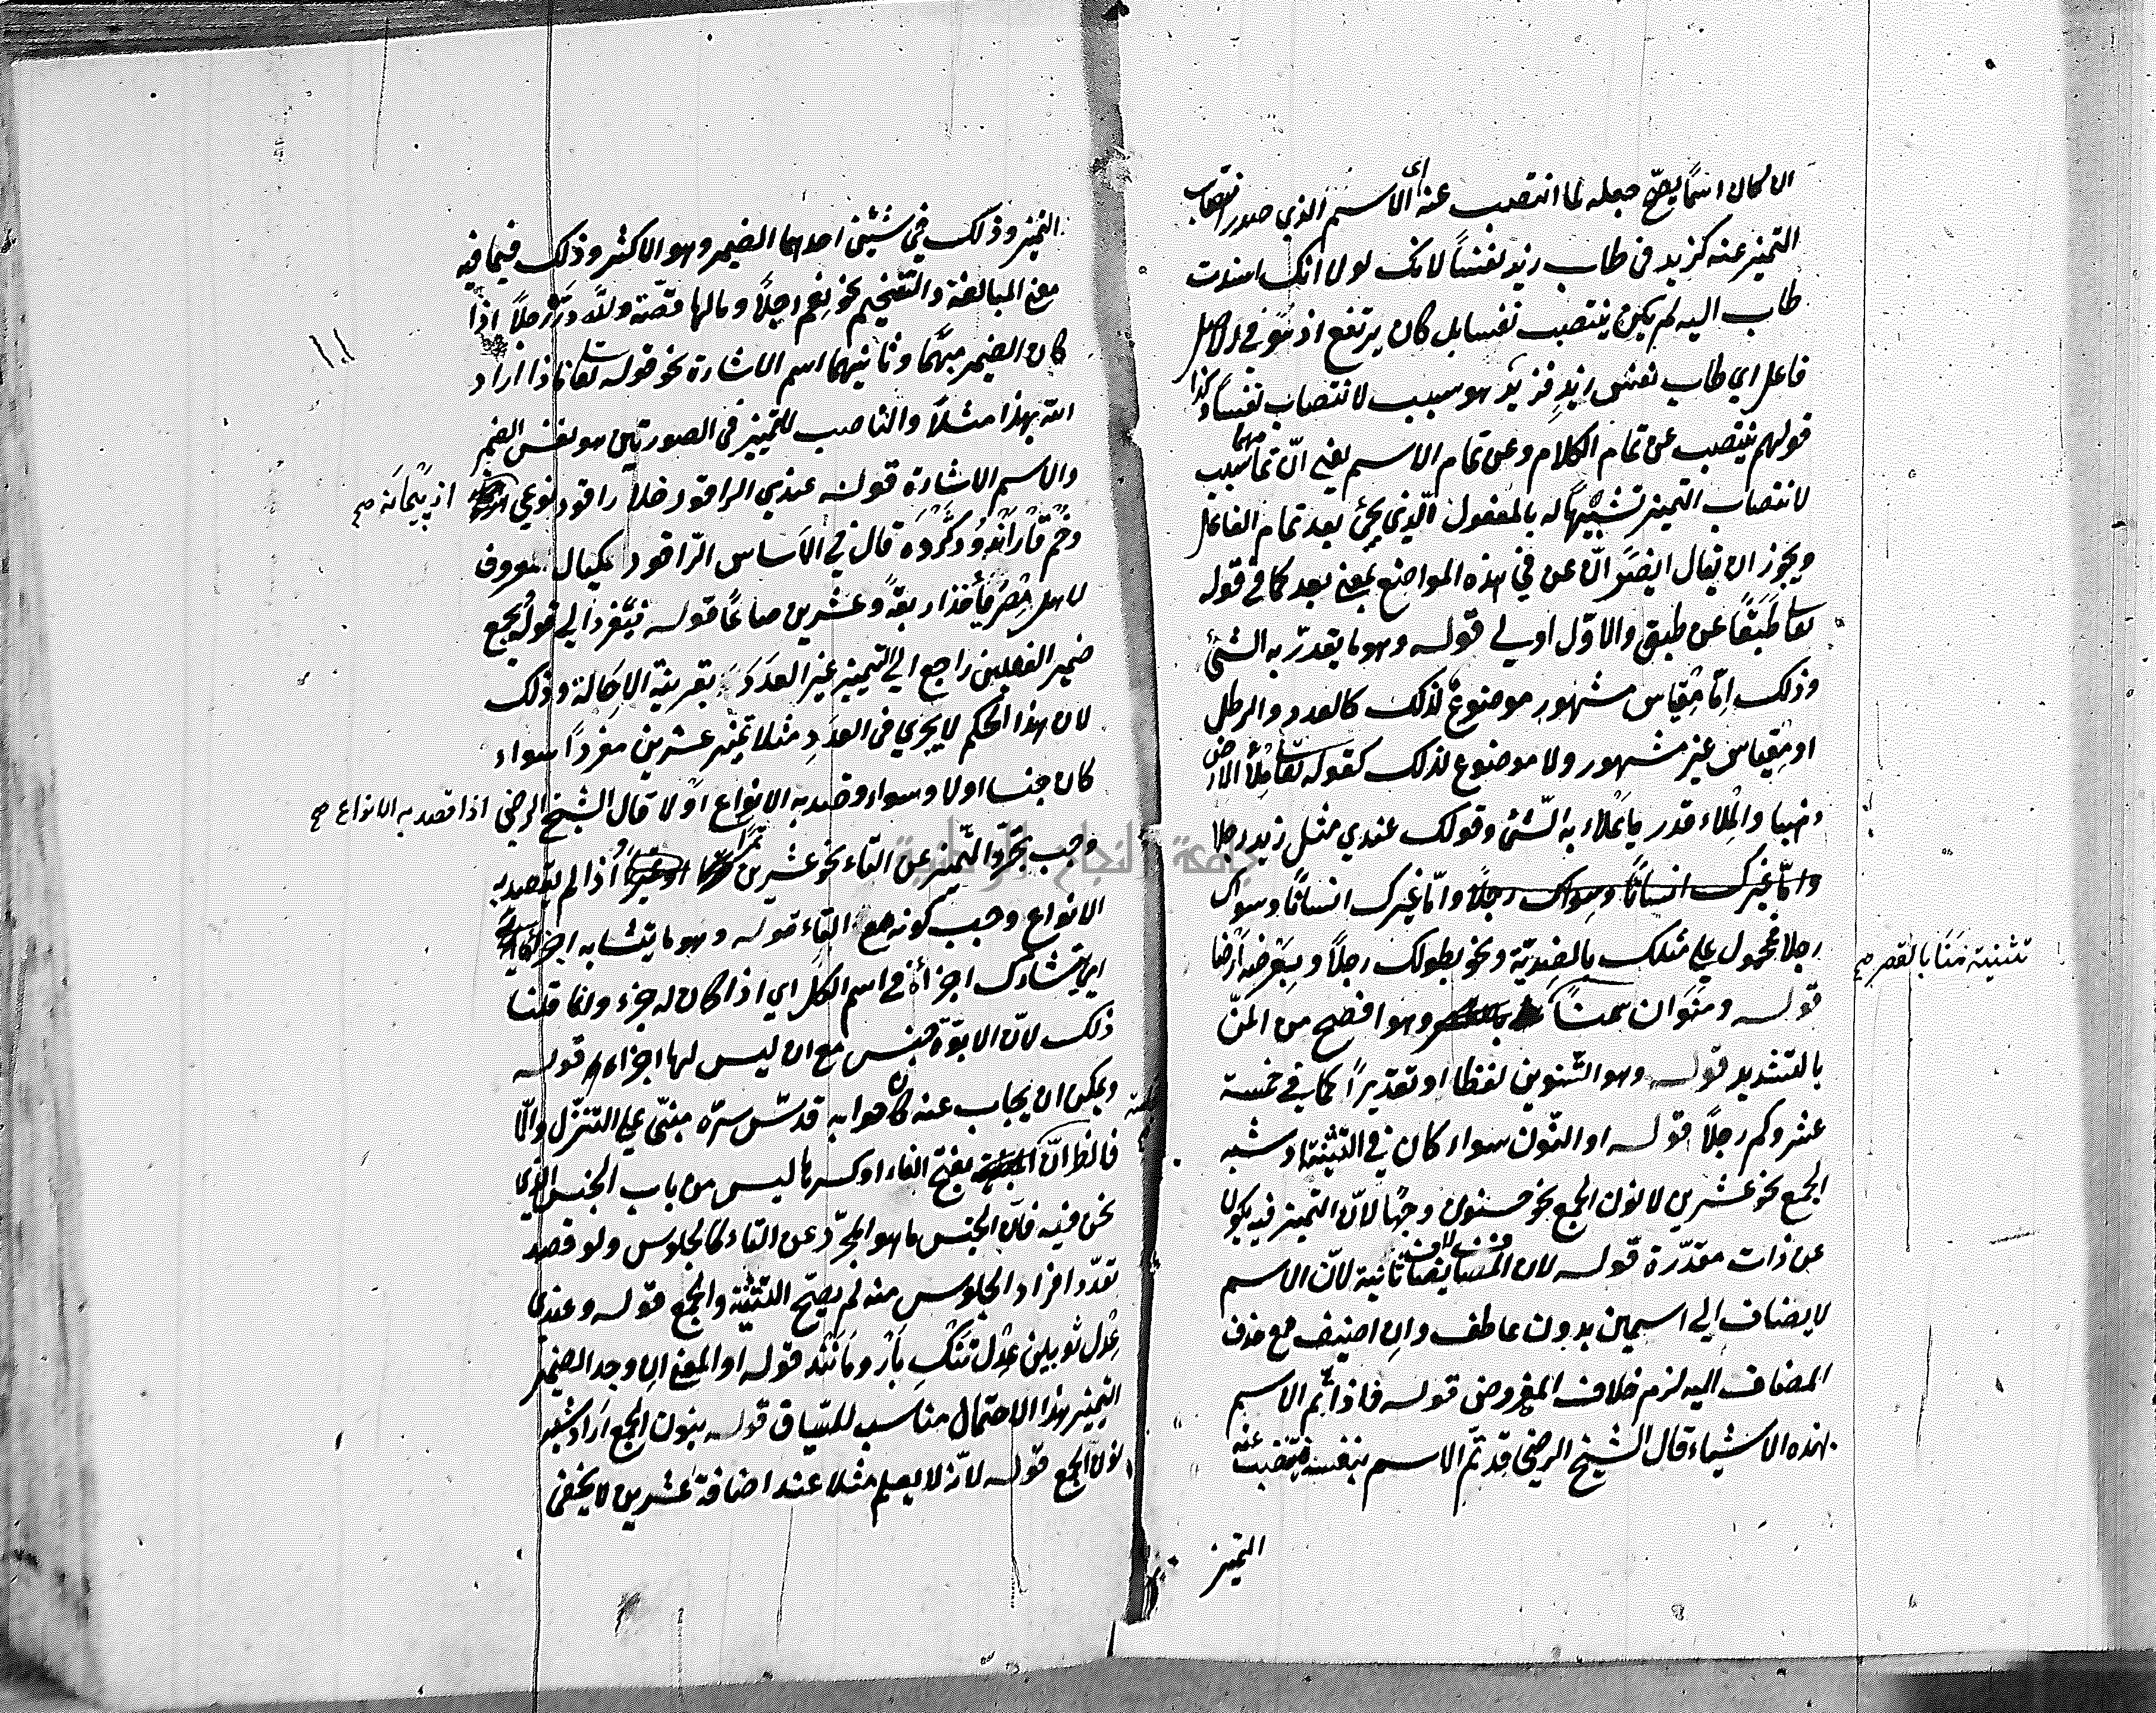 ان كان اسمًا يصحّ جعله لما انتصب عنه أي الاسم الذي صدر انتصاب
التميز عنه كزيد في طاب زيد نفسًا لانك لولا انك اسندت
طاب اليه لم يكن ينتصب نفسا بل كان يرتفع اذ هو في الاصل
فاعل اي طاب نفس زيدٍ فزيد هو سبب لانتصاب نفسًا وكذا
قولهم ينتصب عن تمام الكلام وعن تمام الاسم يعني انّ تمامهما سبب
لانتصاب التميز تشبيهًا له بالمفعول الّذي يجئ بعد تمام الفاعل
ويجوز ان يقال ايضًا انّ عن في هذه المواضع بمعنى بعد كما في قوله
تعا طَبَقًا عن طبق والاوّل اولي قوله وهو ما يقدّر به الشئ
وذلك امّا مقياس مشهور موضوعٌ لذلك كالعدد والرطل
او مقياس غير مشهور ولا موضوع لذلك كقوله تعا ملأ الارض
ذهبا والملاء قدر ما يملاء به الشئ وقولك عندي مثل زيد رجلا
وامّا غيرك انسانًا وسواك رجلًا وامّا غيرك انسانًا وسواك
رجلا فمحمول علي مثلك بالضديّة ونحو بطولك رجلًا وبعرضه ارضا
قوله ومنوان سمنًا وهو افصح من المنّ
تثنية مَنًا بالقصر صح
بالتشديد قوله وهو التنوين لفظا او تقديرًا كما في خمسة
عشر وكم رجلًا قوله او النّون سواء كان في التثنية او شبه
الجمع نحو عشرين لا نون الجمع نحو حسنون وجهًا لانّ التميز فيه يكون
عن ذات مقدّرة قوله لان المضاف لا يضاف ثانية لانّ الاسم
لا يضاف الي اسمين بدون عاطف وان اضيف مع حذف
المضاف اليه لزم خلاف المفروض قوله فاذا تم الاسم
بهذه الاشياء قال الشيخ الرضي قد تمّ الاسم بنفسه فينتصب عنه
التميز
التميز وذلك في شيئين احدهما الضمير وهو الاكثر وذلك فيما فيه
معنى المبالغة والتفخيم نحو نعم رجلًا ومالها قصّة وللّه درّه رجلًا اذا
كان الضمير مبهمًا وثانيهما اسم الاشارة نحو قوله تعا ماذا اراد
١١
اللّه بهذا مثلًا والناصب للتميز في الصورتين هو نفس الضمير
والاسم الاشارة قوله عندي الراقود خلا راقود نوعي از پيمانه صح
وخم قاراندود كرده قال في الاساس الرّاقود مكيال معروف
لاهل مصر يأخذ اربعة وعشرين صاعًا قوله فيفرد الي قوله ويجمع
ضمير الفعلين راجع الي التميز غير العدد بقرينة الاحالة وذلك
لان هذا الحكم لا يجري في العدد مثلا تميز عشرين مفردًا سواء
كان جنسا او لا وسواء قصد به الانواع او لا قال الشيخ الرضي اذا قصد به الانواع صح
وجب تجرّد التّميز عن التاء نحو عشرين تمرًا اذا لم يقصد به
الانواع وجب كونه مع التاء قوله وهو ما يتشابه اجزاؤه
اي يتشارك اجزاءه في اسم الكل اي اذا كان له جزء وانما قلنا
ذلك لانّ الابوّة جنس مع ان ليس لها اجزاء قوله
ويمكن ان يجاب عنه كان جوابه قدّس سرّه مبنيّ علي التنزّل والّا
فالظ انّ بفتح الفاء او كسرها ليس من باب الجنس الذي
نحن فيه فانّ الجنس ما هو المجرّد عن التاء كالجلوس ولو قصد
تعدّد افراد الجلوس منه لم يصحّ التثنية والجمع قوله وعندي
عِدْل ثوبين عِدْل تنگ بار ومانند قوله او المعنى ان وجد الضمير
التميز هذا الاحتمال مناسب للسّياق قوله بنون الجمع اراد شبه
نون الجمع قوله لانّه لا يعلم مثلا عند اضافة عشرين لا يخفى